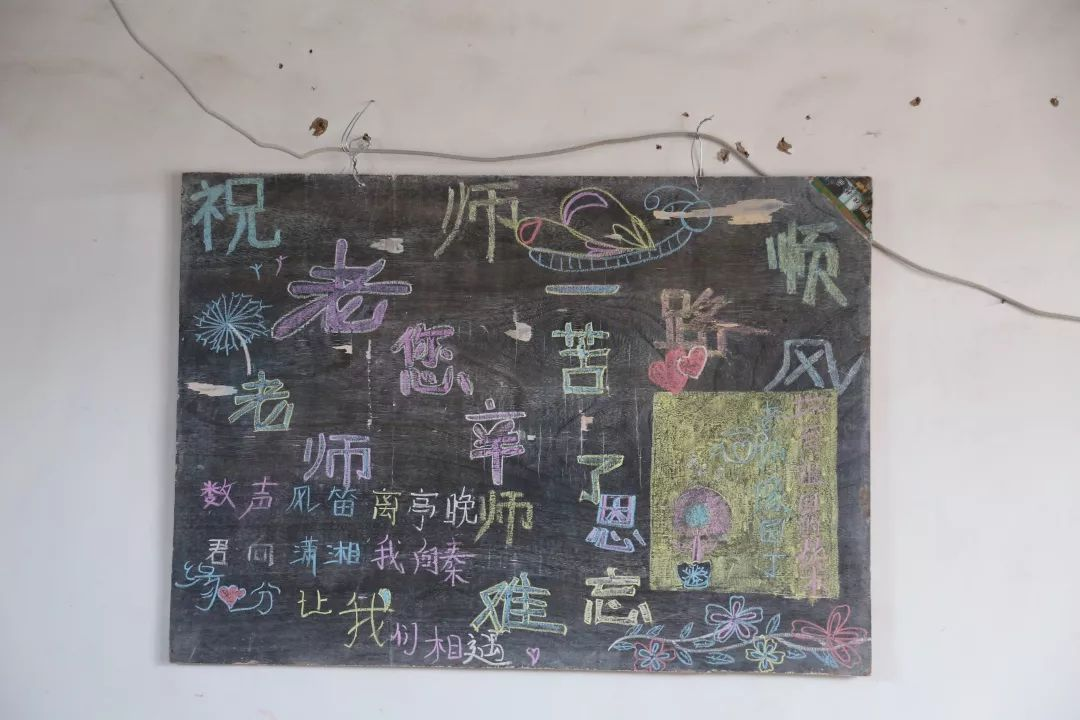 祝老师一路顺风
老师您辛苦了
数声风笛离亭晚
君向潇湘我向秦
师恩难忘
缘分让我们相遇